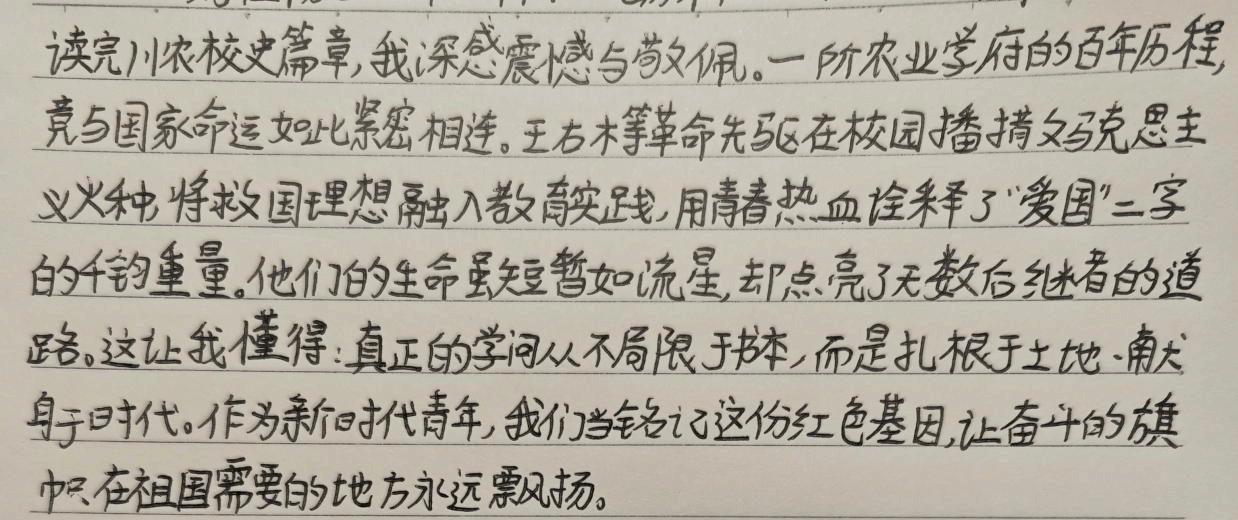 读完川农校史篇章,我深感震憾与敬佩。一所农业学府的百年历程,
竟与国家命运如此紧密相连。王右木等革命先驱在校园播撒马克思主
义火种,将救国理想融入教育实践,用青春热血诠释了“爱国”二字
的千钧重量。他们的生命虽短暂如流星,却点亮了无数后继者的道
路。这让我懂得:真正的学问从不局限于书本,而是扎根于土地、献
身于时代。作为新时代青年,我们当铭记这份红色基因,让奋斗的旗
帜在祖国需要的地方永远飘扬。